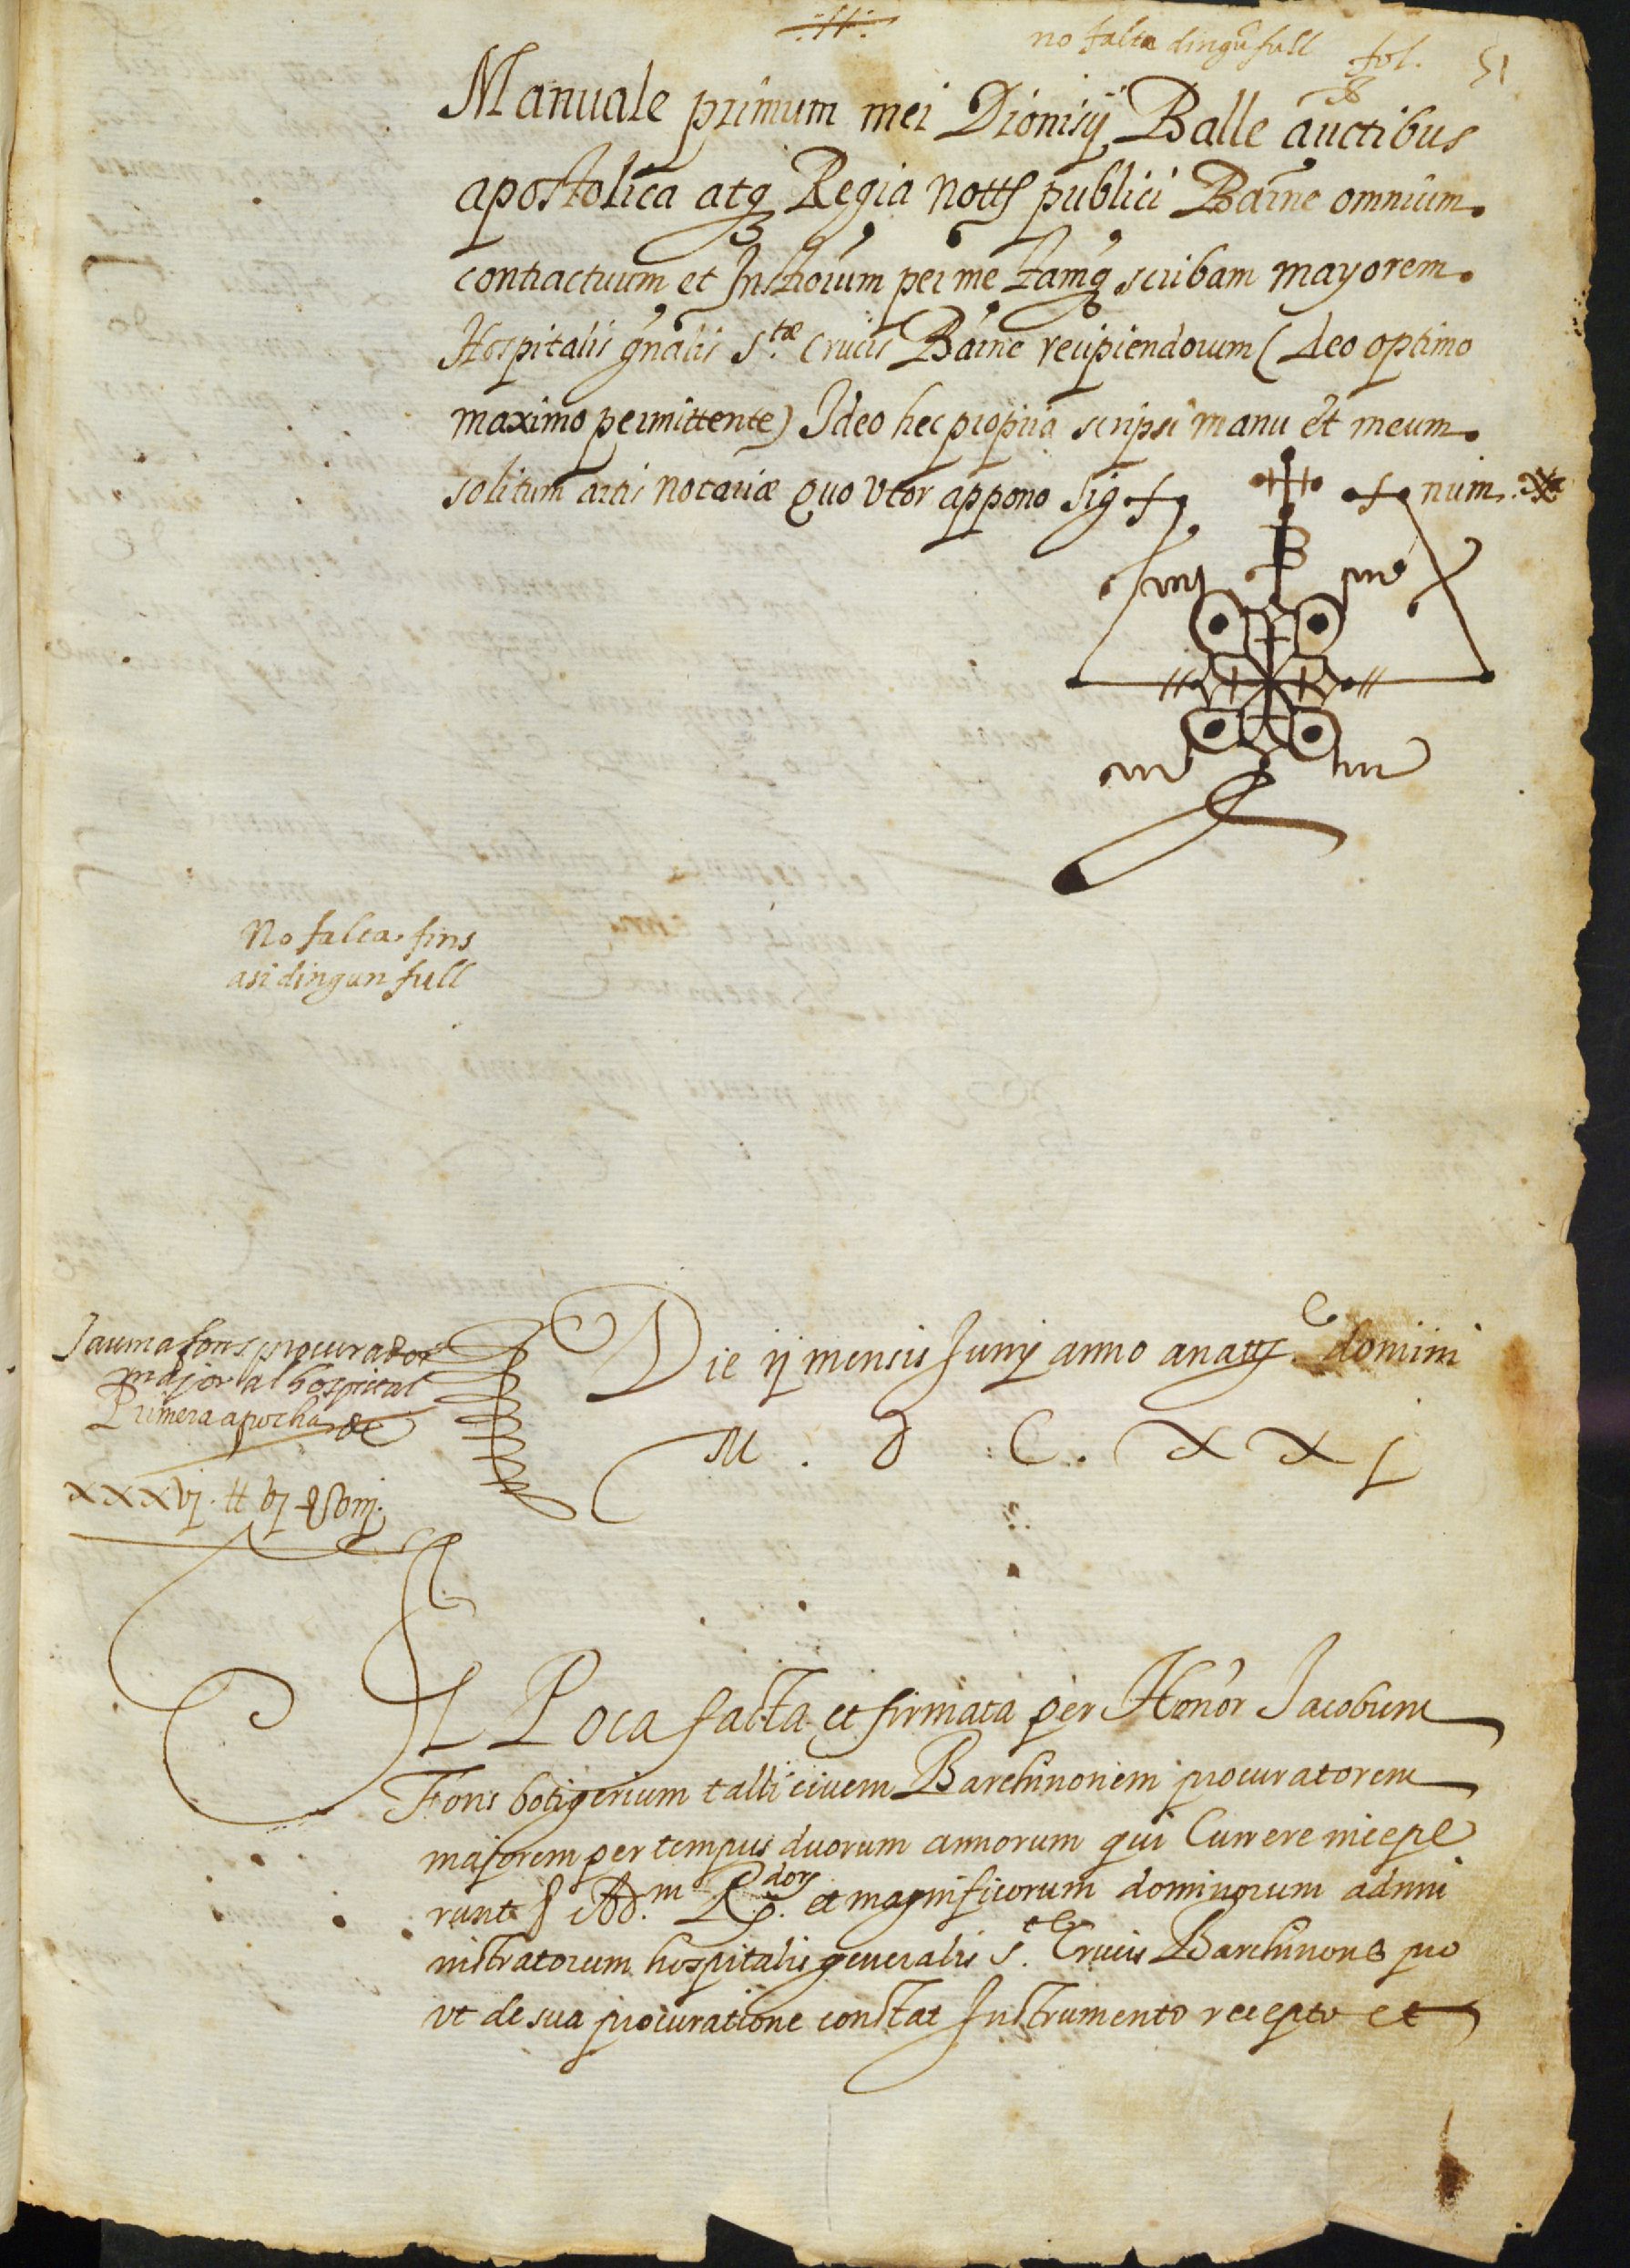 no falta dingu full fol. 51
Manuale primum mei Dionisij Balle auctibus
apostolica atq Regia notts publici Barne omnium.
contractuum et Instrorum per me tamq scribam mayorem.
Hospitalis gnalis S.tæ Crucis Barne recipiendorum (Deo optimo
maximo permittente) Ideo hec propria scripsi manu et meum.
solitum artis notariæ quo vtor appono Sig num.
B
No falta fins
asi dingun full
Jauma fons procurador
major al hospital
Primera apocha de
xxxvj. tt vj
Die ij mensis Junij anno a natte domini
M . D . C . X X j
A Poca facta et firmata per Honor Jacobum
Fons botigerium talli civem Barchinonem procuratorem
majorem per tempus duorum annorum qui Currere incepe
runt Ad.m R. dors et magnificorum dominorum admi
nistratorum hospitalis generalis S.te Crucis Barchinone pro
vt de sua procuratione constat Instrumento recepto et